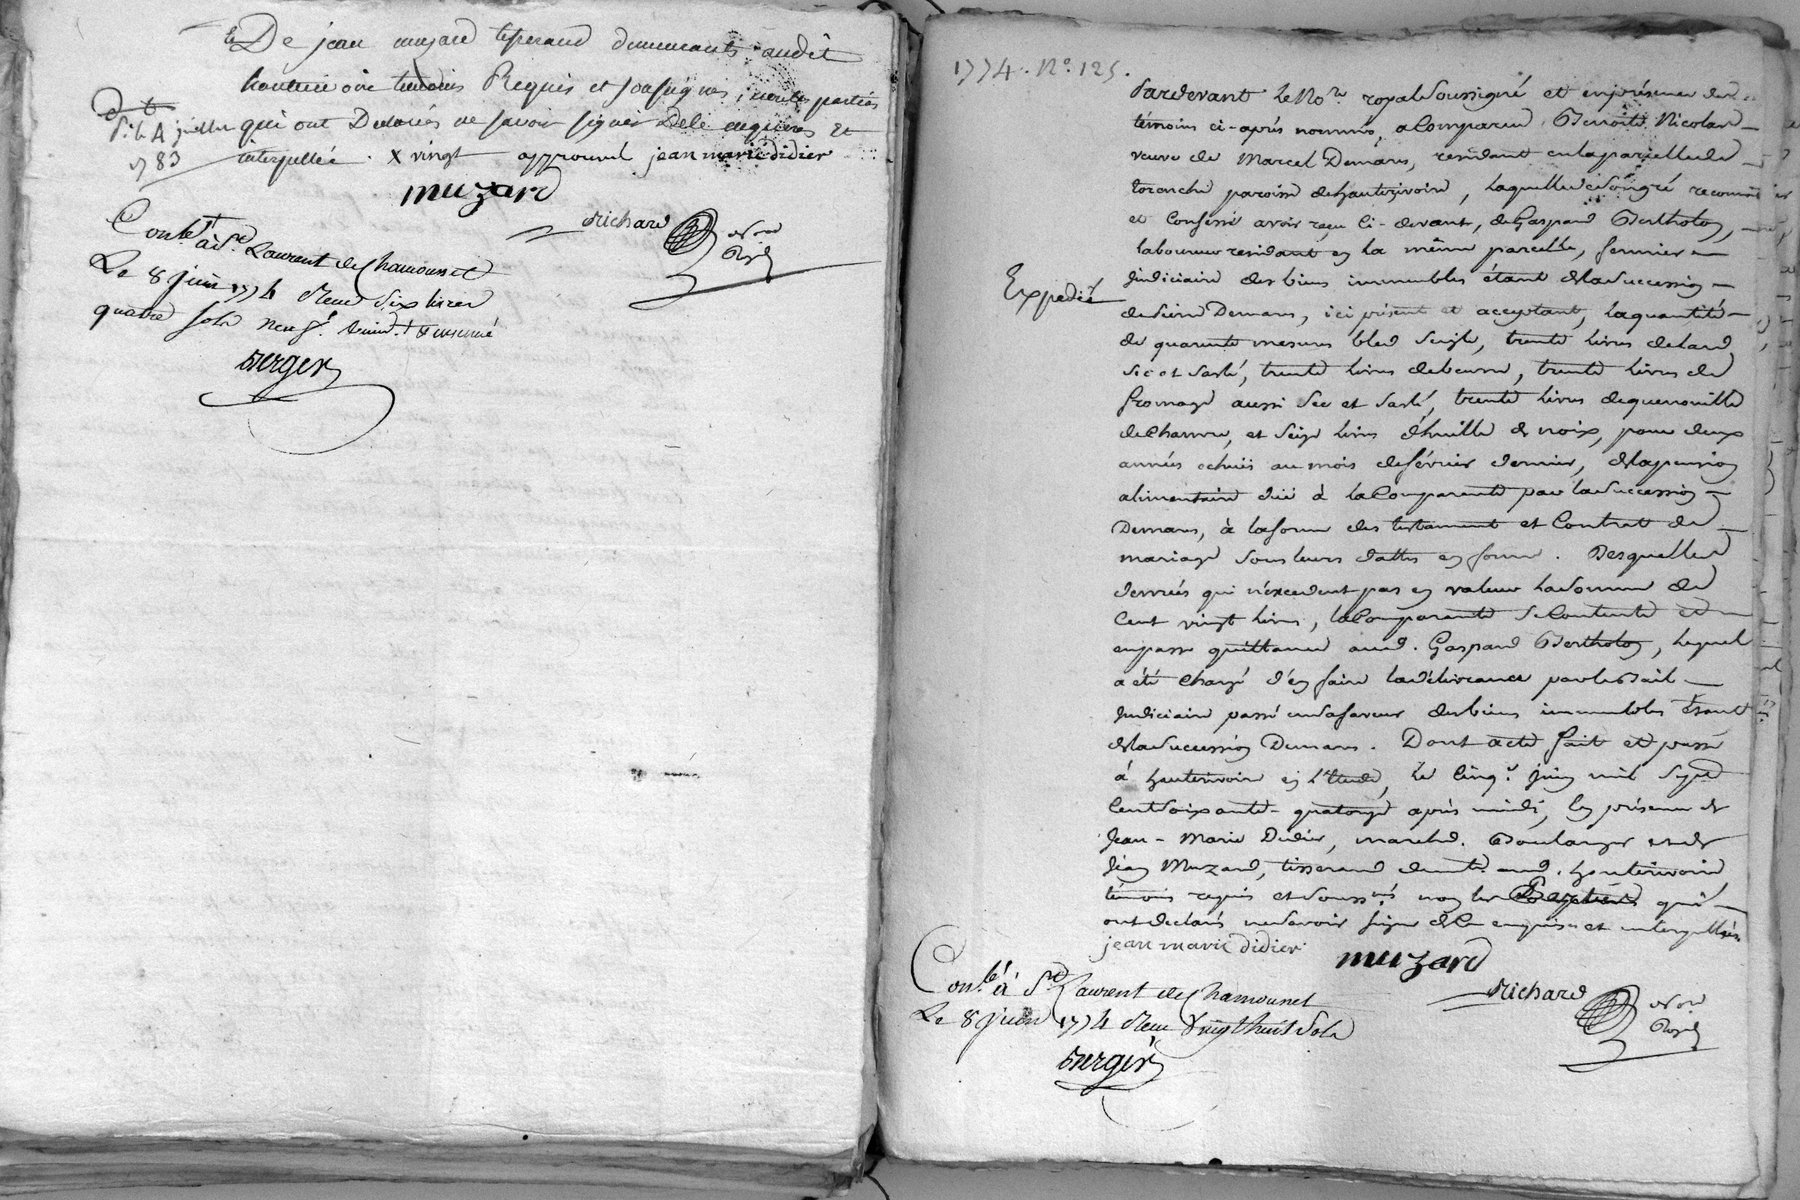 & De jean muzard tisserand demeurants audit
hauterivoire temoins Requis et soussignés, non les parties
qui ont Declarés ne savoir signer De ce enquises et
interpellée . X vingt approuvé jean marie didier
Exp.t
d. le 4 juillet
1783
muzard
Richard
No.re
Royal
Con.lé à S.t Laurent de Chamousset
Le 8 juin 1774 Reçu Six livres
quatre sols neuf d.
Berger
1774. N.o 125.
Pardevant le No.re royal soussigné et en présence des
témoins ci-après nommés, a Comparu Benoite Nicolas
veuve de Marcel Demars, residant en la parcelle de
toranche paroisse de hauterivoire, laquelle de son gré reconnoit
et Confesse avoir reçu Ci-devant, de Gaspard Bertholon,
laboureur residant en la même parcelle, fermier
judiciaire des biens immeubles étant de la Succession
Expedié
de Pierre Demars, ici présent et acceptant, la quantité
de quarante mesures bled Seigle, trente livres de lard
Sec et Sarlé, trente livres de beurre, trente livres de
fromage aussi Sec et Sarlé, trente livres de quenouille
de Chanvre, et Seize livres d'huille de noix, pour deux
années echues au mois de février dernier, de la pension
alimentaire düe à la Comparante par la Succession
Demars, à la forme des testament et Contrat de
mariage sous leurs dattes en forme. Desquelles
denrées qui n'excedent pas en valeur la Somme de
Cent vingt livres, la Comparante Se Contente et
en passe quittance aud. Gaspard Bertholon, lequel
a été Chargé d'en faire la délivrance par le Bail
judiciaire passé en sa faveur des biens immeubles étant
de la Succession Demars. Dont acte fait et passé
à hauterivoire en l'étude, le Cinq.e juin mil Sept
Cent Soixante-quatorze après midi, En présence de
Jean-Marie Didier, march.d Boulanger et de
Jean Muzard, tisserand dem.t aud. hauterivoire,
témoins requis et souss.nés non les parties qui
ont declarés ne Savoir Signer de ce enquises et interpellées
jean marie didier
muzard
Richard
No.re
Royal
Con.lé à S.t Laurent de Chamousset
Le 8 juin 1774 Reçu Vingt huit Sols
Berger